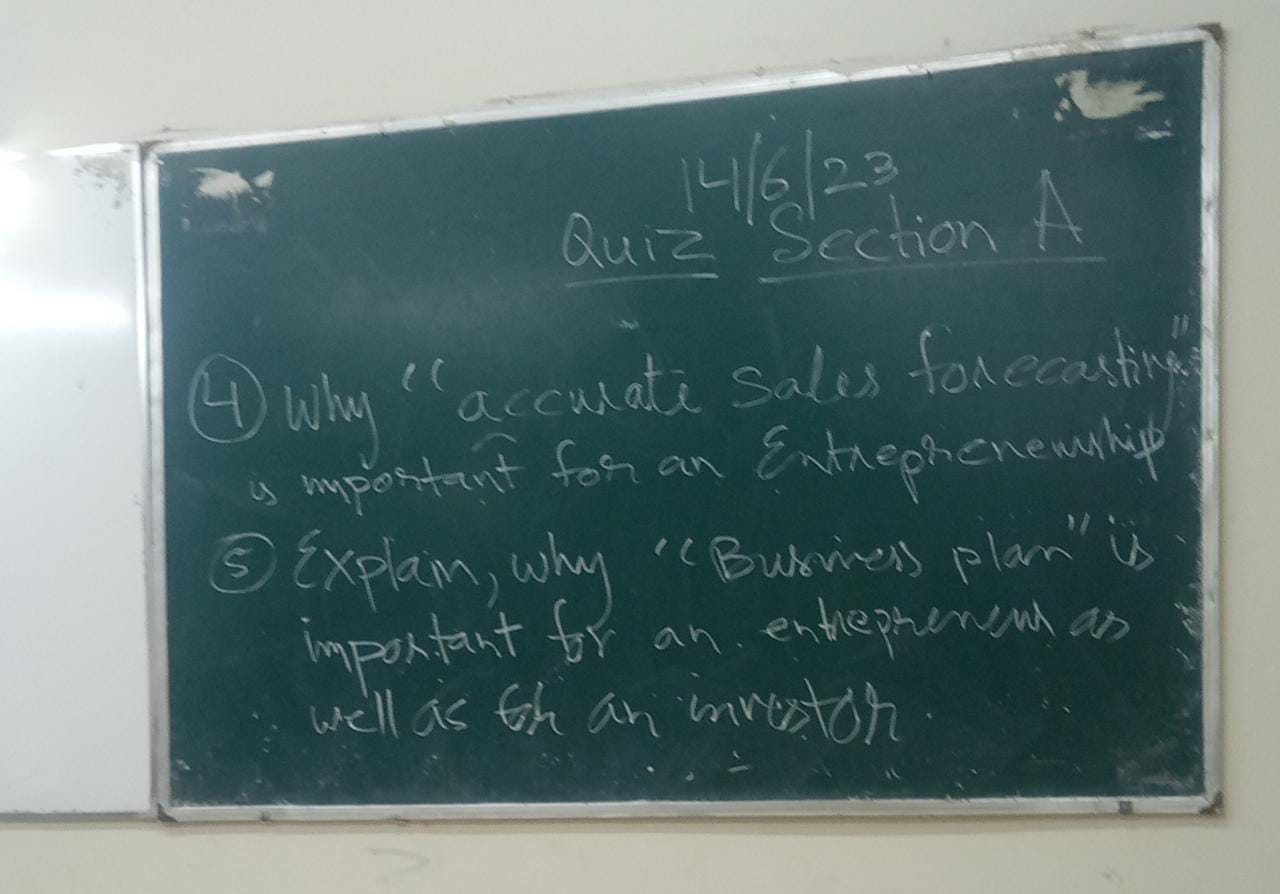 14/6/23
Quiz Section A
④ Why "accurate Sales forecasting"
is important for an Entrepreneurship
⑤ Explain, why "Business plan" is
important for an entrepreneur as
well as for an investor.